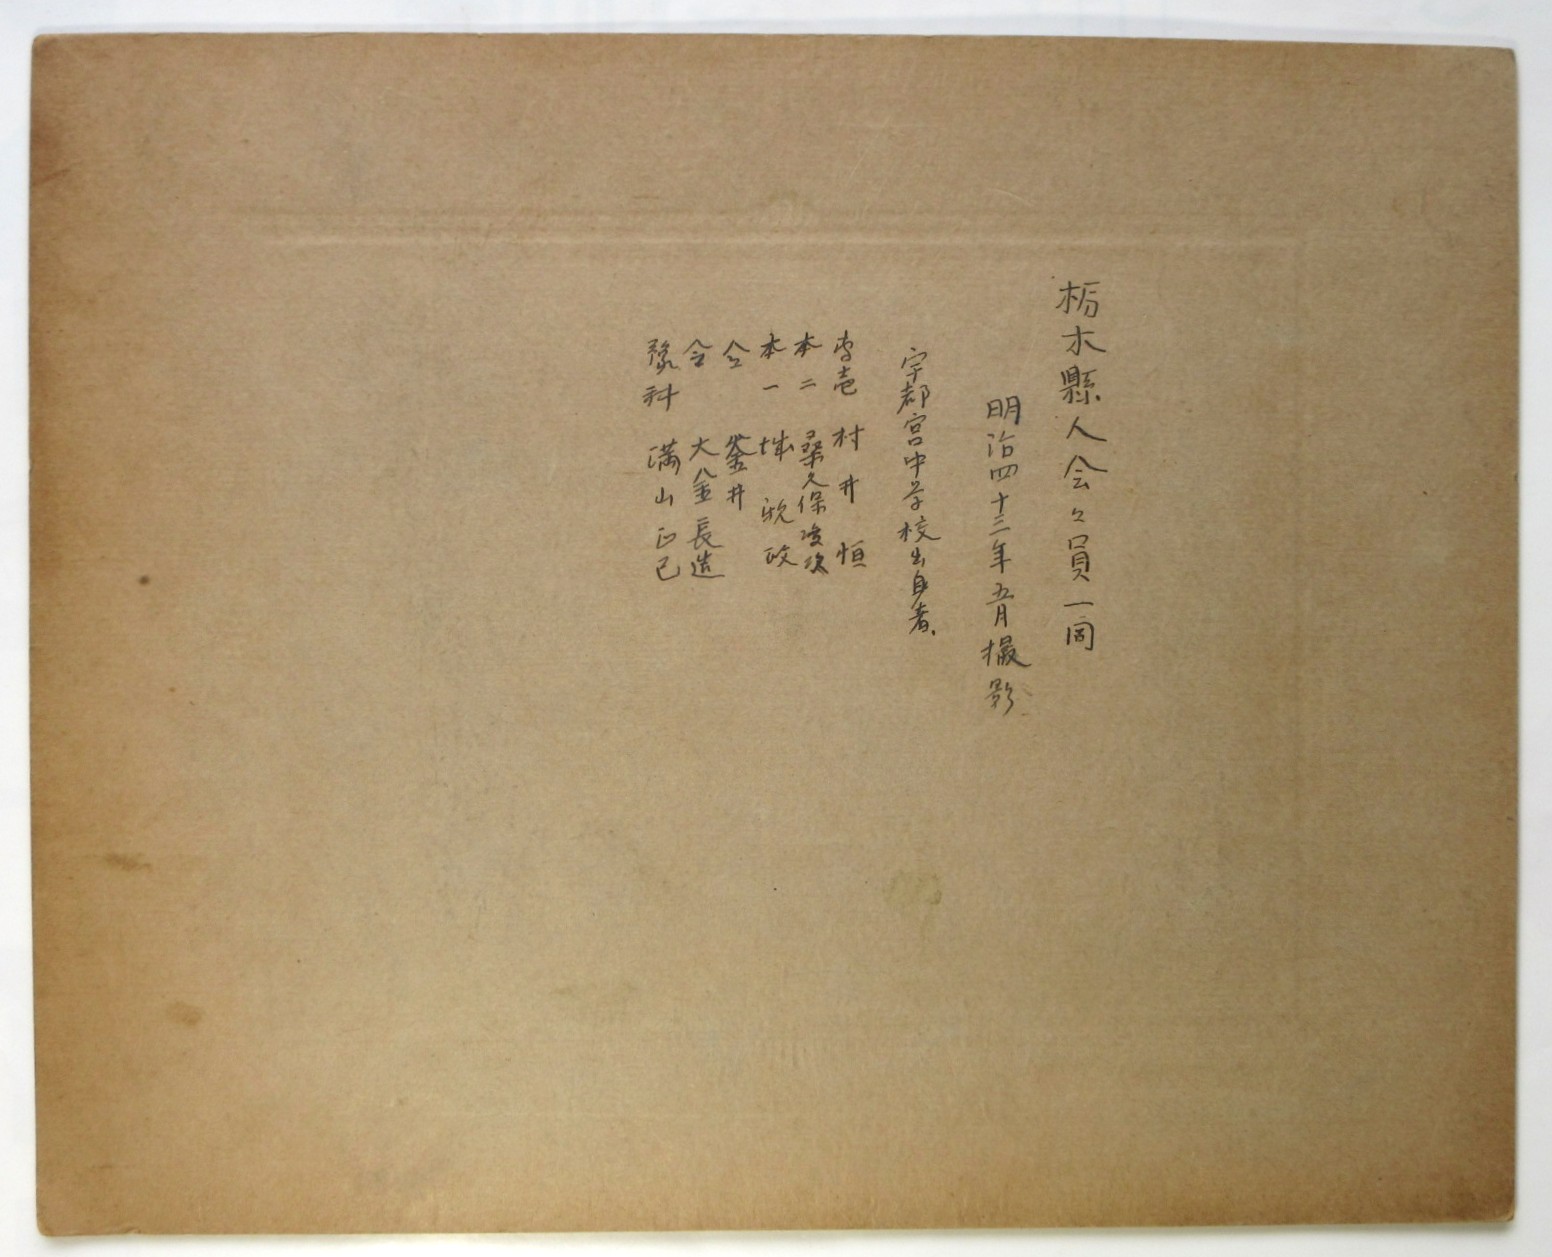 栃木縣人会々員一同
明治四十三年五月撮影
宇都宮中学校出身者、
専壱 村井恒
本二 桑久保
本一 政
仝 釜井
仝 大金長造
豫科 満山正己